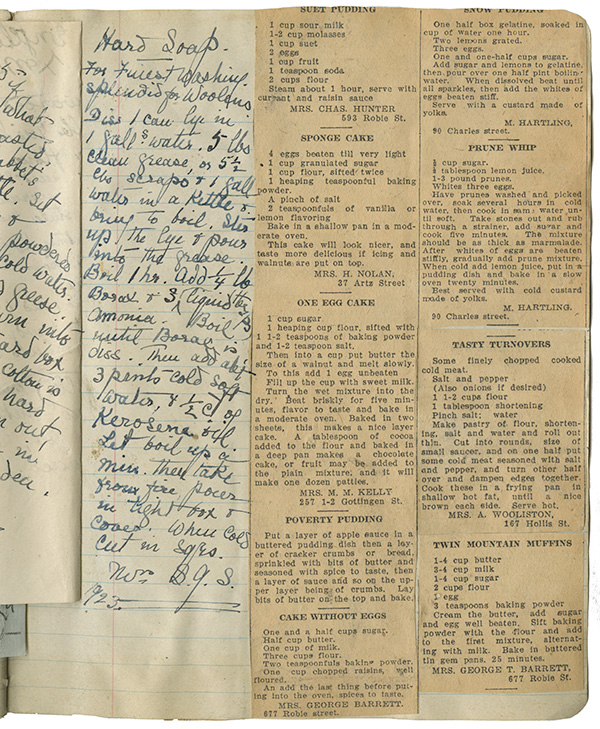 Hard Soap.
For Finest Washing
splendid for Woolens
Diss 1 can Lye in
1 gall water. 5 lbs
clean grease, or 5 1/2
lbs scraps & 1 gall
water in a Kettle &
bring to boil. Stir
up the Lye & pour
into the grease.
Boil 1 hr. Add 1/4 lb
Borax & 3 liquid
Amonia. Boil
until Borax is
diss. Then add abt
3 pints cold soft
water, & 1/2 C of
Kerosene oil.
Let boil up a
min. then take
from fire pour
in light box &
cover. When cold
cut in sqrs.
Nov B.J.S.
1923.
SUET PUDDING
1 cup sour milk
1-2 cup molasses
1 cup suet
2 eggs
1 cup fruit
1 teaspoon soda
2 cups flour
Steam about 1 hour, serve with
currant and raisin sauce
MRS. CHAS. HUNTER
593 Robie St.
SPONGE CAKE
4 eggs beaten till very light
1 cup granulated sugar
1 cup flour, sifted twice
1 heaping teaspoonful baking
powder.
A pinch of salt
2 teaspoonfuls of vanilla or
lemon flavoring
Bake in a shallow pan in a mod-
erate oven.
This cake will look nicer, and
taste more delicious if icing and
walnuts are put on top.
MRS. H. NOLAN,
37 Artz Street
ONE EGG CAKE
1 cup sugar
1 heaping cup flour, sifted with
1 1-2 teaspoons of baking powder
and 1-2 teaspoon salt,
Then into a cup put butter the
size of a walnut and melt slowly.
To this add 1 egg unbeaten
Fill up the cup with sweet milk.
Turn the wet mixture into the
dry. Beat briskly for five min-
utes, flavor to taste and bake in
a moderate oven. Baked in two
sheets, this makes a nice layer
cake. A tablespoon of cocoa
added to the flour and baked in
a deep pan makes a chocolate
cake, or fruit may be added to
the plain mixture, and it will
make one dozen patties.
MRS. M. M. KELLY
257 1-2 Gottingen St.
POVERTY PUDDING
Put a layer of apple sauce in a
buttered pudding dish then a lay-
er of cracker crumbs or bread,
sprinkled with bits of butter and
seasoned with spice to taste, then
a layer of sauce and so on the up-
per layer being of crumbs. Lay
bits of butter on the top and bake.
CAKE WITHOUT EGGS
One and a half cups sugar.
Half cup butter.
One cup of milk.
Three cups flour.
Two teaspoonfuls baking powder.
One cup chopped raisins, well
floured.
An add the last thing before put-
ing into the oven, spices to taste.
MRS. GEORGE BARRETT.
677 Robie street.
SNOW PUDDING
One half box gelatine, soaked in
cup of water one hour.
Two lemons grated.
Three eggs.
One and one-half cups sugar.
Add sugar and lemons to gelatine,
then pour over one half pint boiling
water. When dissolved beat until
all sparkles, then add the whites of
eggs beaten stiff.
Serve with a custard made of
yolks.
M. HARTLING,
90 Charles street.
PRUNE WHIP
cup sugar.
tablespoon lemon juice.
1-3 pound prunes.
Whites three eggs.
Have prunes washed and picked
over, soak several hours in cold
water, then cook in same water un-
til soft. Take stones out and rub
through a strainer, add sugar and
cook five minutes. The mixture
should be as thick as marmalade.
After whites of eggs are beaten
stiffly, gradually add prune mixture.
When cold add lemon juice, put in a
pudding dish and bake in a slow
oven twenty minutes.
Best served with cold custard
made of yolks.
M. HARTLING.
90 Charles street.
TASTY TURNOVERS
Some finely chopped cooked
cold meat.
Salt and pepper
(Also onions if desired)
1 1-2 cups flour
1 tablespoon shortening
Pinch salt: water
Make pastry of flour, shorten-
ing, salt and water and roll out
thin. Cut into rounds, size of
small saucer, and on one half put
some cold meat seasoned with salt
and pepper, and turn other half
over and dampen edges together.
Cook these in a frying pan in
shallow hot fat, until a nice
brown each side. Serve hot.
MRS. A. WOOLISTON,
167 Hollis St.
TWIN MOUNTAIN MUFFINS
1-4 cup butter
3-4 cup milk
1-4 cup sugar
2 cups flour
1 egg
3 teaspoons baking powder
Cream the butter, add sugar
and egg well beaten. Sift baking
powder with the flour and add
to the first mixture, alternat-
ing with milk. Bake in buttered
tin gem pans. 25 minutes.
MRS. GEORGE T. BARRETT,
677 Robie St.
what
powdered
cold water.
grease.
into
box
cotton is
hard
out